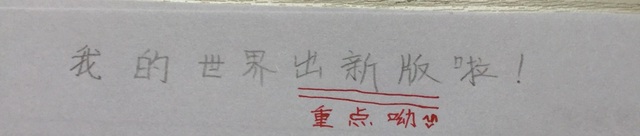 我的世界出新版啦！
重点呦